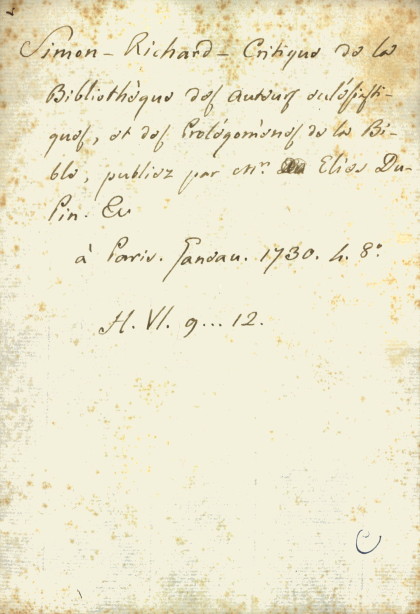 Simon - Richard - Critique de la
Bibliothèque des Auteurs eclésiasti-
ques, et des Prolégomènes de la Bi-
ble, publiez par Mr. Elies Du-
Pin.
à Paris. Ganeau. 1730. 4. 8°.
H. VI. 9...12.